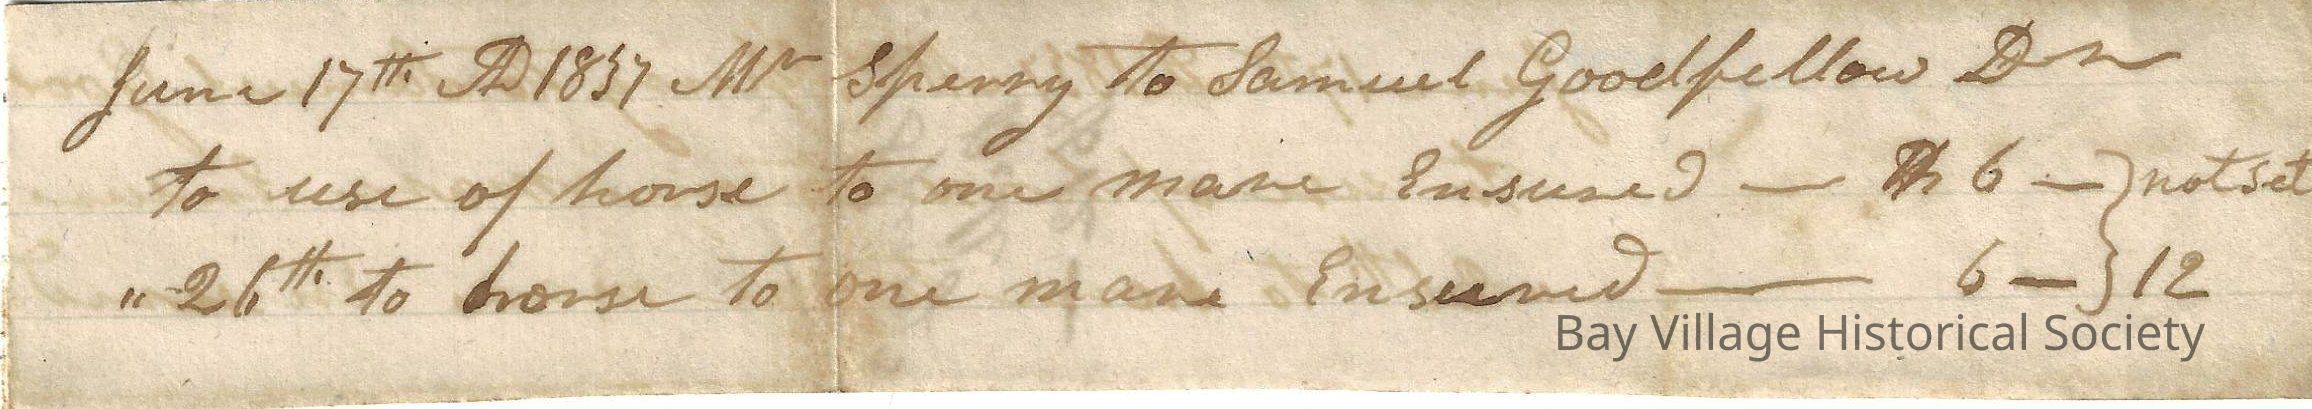 June 17th AD 1837 Mr Sperry to Samuel Goodfellow Dr
to use of horse to one mare Ensured — $ 6 — } not set
" 26th to horse to one mare Ensured — 6 — } 12
Bay Village Historical Society